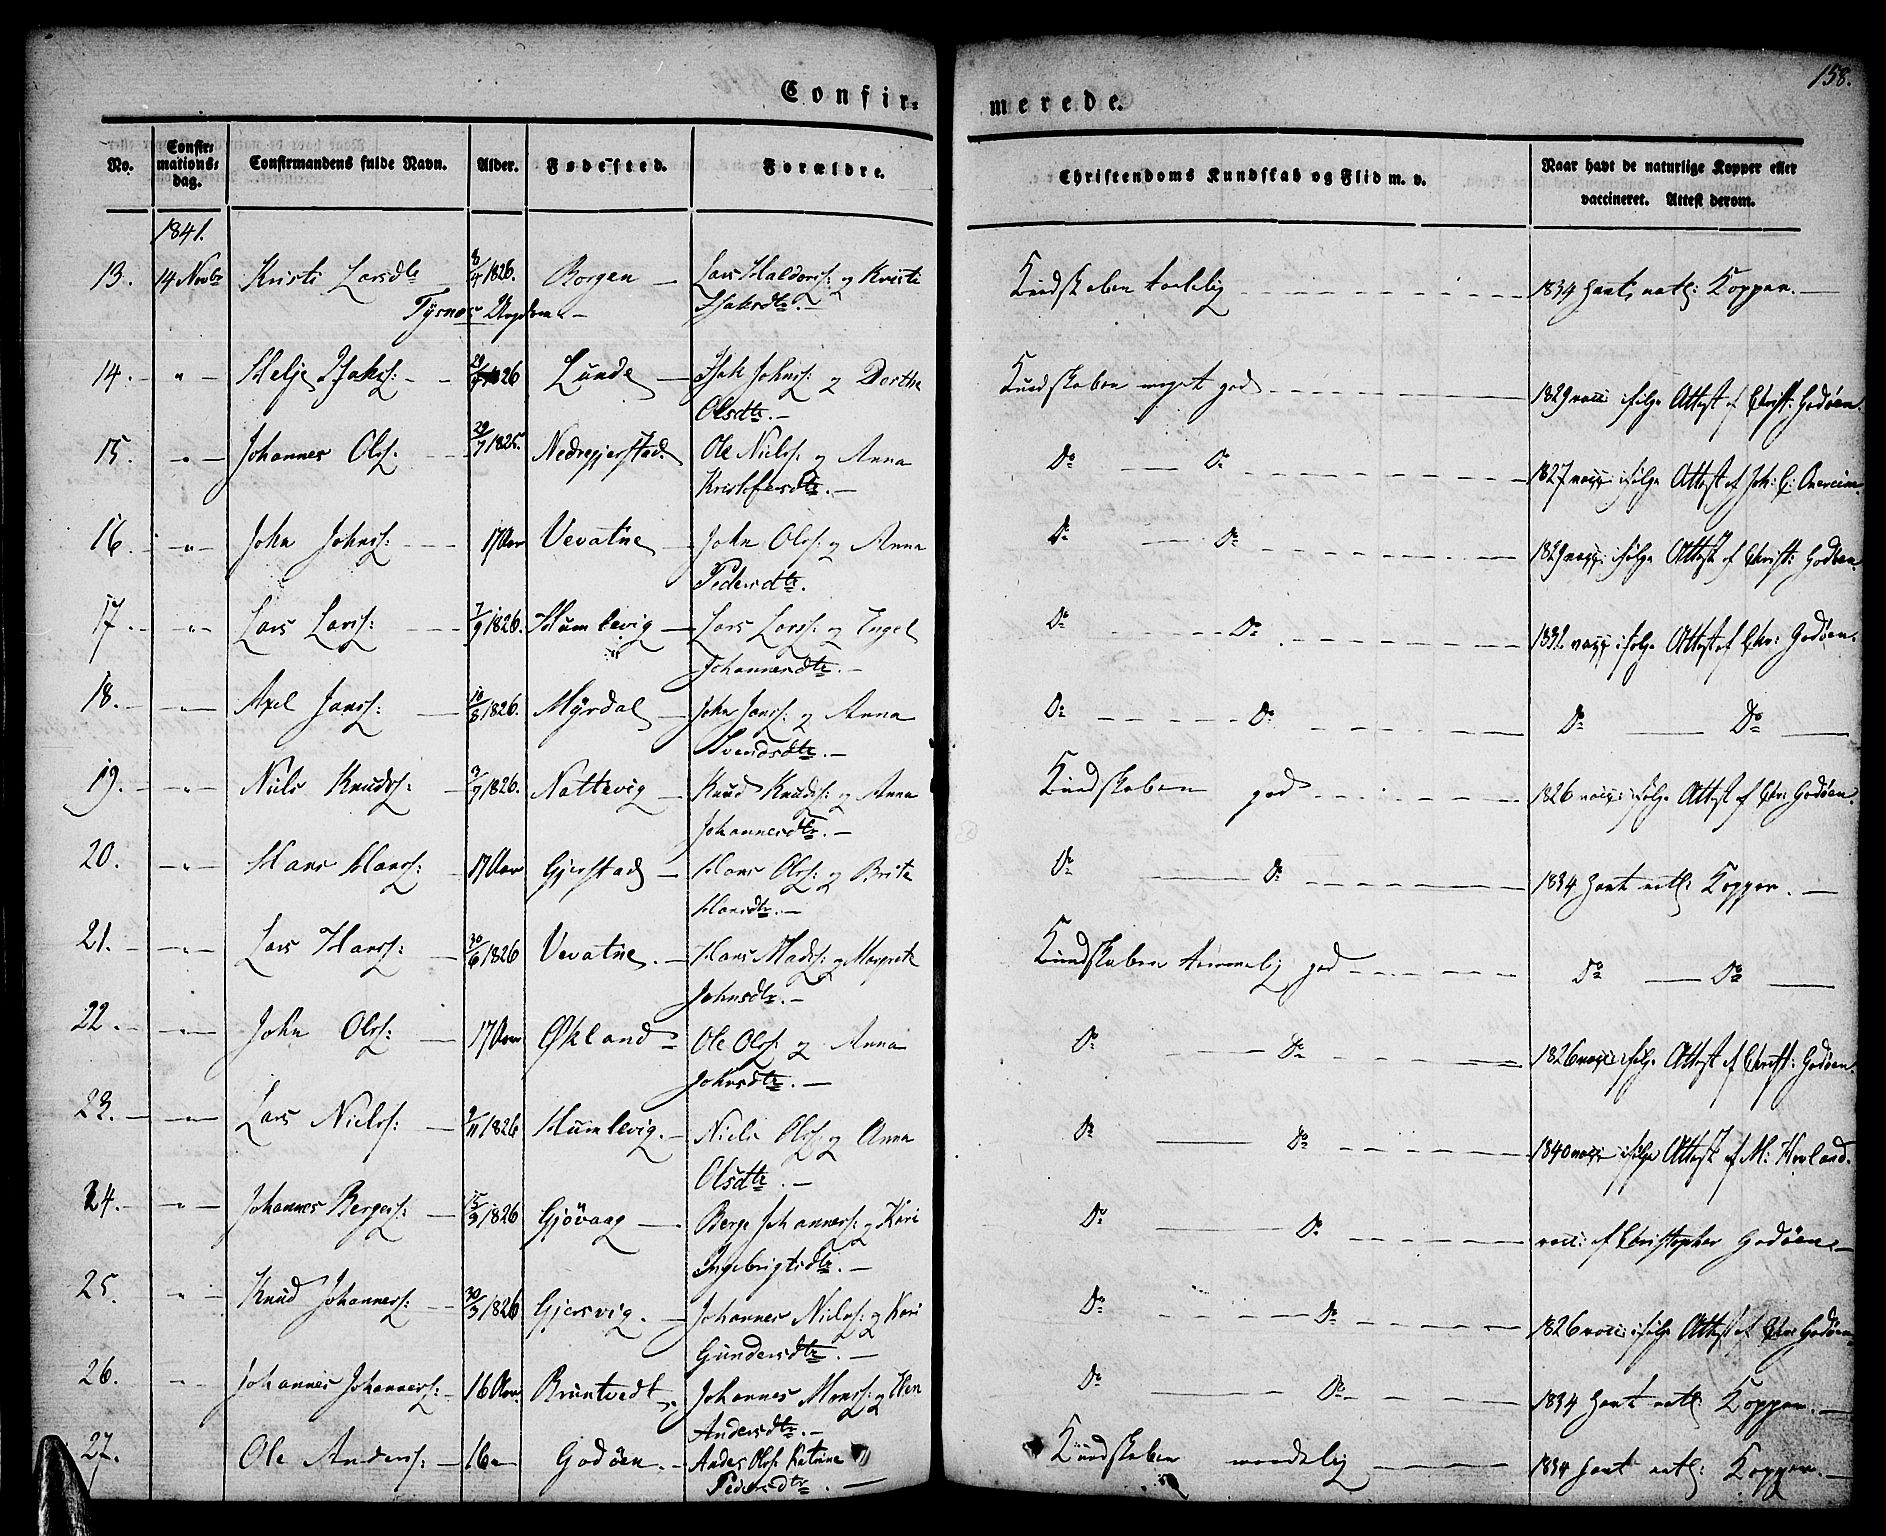 158.
Confirmerede.
No. Confirmationsdag. Confirmandens fulde Navn. Alder. Fødested. Forældre. Christendoms Kundskab og Flid m. v. Naar havt de naturlige Kopper eller vaccineret. Attest derom.
1841.
13. 14 Novbr Kristi Larsdtr 8/4 1826. Borgen Lars Haldorss: og Kristi Kundskaben 1834 havt natl: Kopper.
Isaksdtr.
Tysnæs Ungdom
14. " Helje Isakss: 1826 Lunde Isak Johnss: og Dorthe Kundskaben meget god 1829 vacc: ifølge Attest af Christ: Godøen.
Olsdtr.
15. " Johannes Olss: 29/7 1825. Nedregjerstad Ole Nielss: og Anna Do Do 1827 vacc: ifølge Attest af Joh: C:
Kristofersdtr.
16. " John Johnss: 17 Aar Vevatne John Olss: og Anna Do Do 1829 vacc: ifølge Attest af Christ: Godøen.
Pedersdtr.
17. " Lars Larss: 7/9 1826. Humlevig Lars Larss: og Engel Do Do 1832 vacc: ifølge Attest af Chr: Godøen.
Johannesdtr.
18. " Axel Janss: 10/8 1826. Myrdal John Janss: og Anna Do Do Do Do
Svendsdtr.
19. " Niels Knudss: 3/7 1826. Nattevig Knud Knudss: og Anna Kundskaben god 1826 vacc: ifølge Attest af Chr: Godøen.
Johannesdtr.
20. " Hans Hanss: 17 Aar Gjerstad Hans Olss: og Brite Do Do 1834 havt natl: Kopper.
Hansdtr.
21. " Lars Hanss: 30/6 1826 Vevatne. Hans Madss: og Margrete Kundskaben temmelig god Do Do
Johnsdtr.
22. " John Olss: 17 Aar Økland Ole Olss: og Anna Do Do 1826 vacc: ifølge Attest af Christ: Godøen.
Johnsdtr.
23. " Lars Nielss: 9/11 1826 Humlevig. Niels Olss: og Anna Do Do 1840 vacc: ifølge Attest af M: Hovland.
Olsdtr.
24. " Johannes Bergess: 15/3 1826 Gjøvaag Berge Johanness: og Kari Do Do vacc: af Christopher Godøen.
Ingebrigtsdtr.
25. " Knud Johanness: 30/3 1826 Gjersvig. Johannes Nielss: og Kari Do Do 1826 vacc: ifølge Attest af Chr: Godøen
Gundersdtr.
26. " Johannes Johanness: 16 Aar Bruntvedt Johannes Monss: og Do Do 1834 havt natl: Kopper.
Andersdtr.
27. Ole Anderss: 16 Godøen. Anders Olss: Katrine Kundskaben maadelig 1834 havt natl: Kopper.
Pedersdtr.